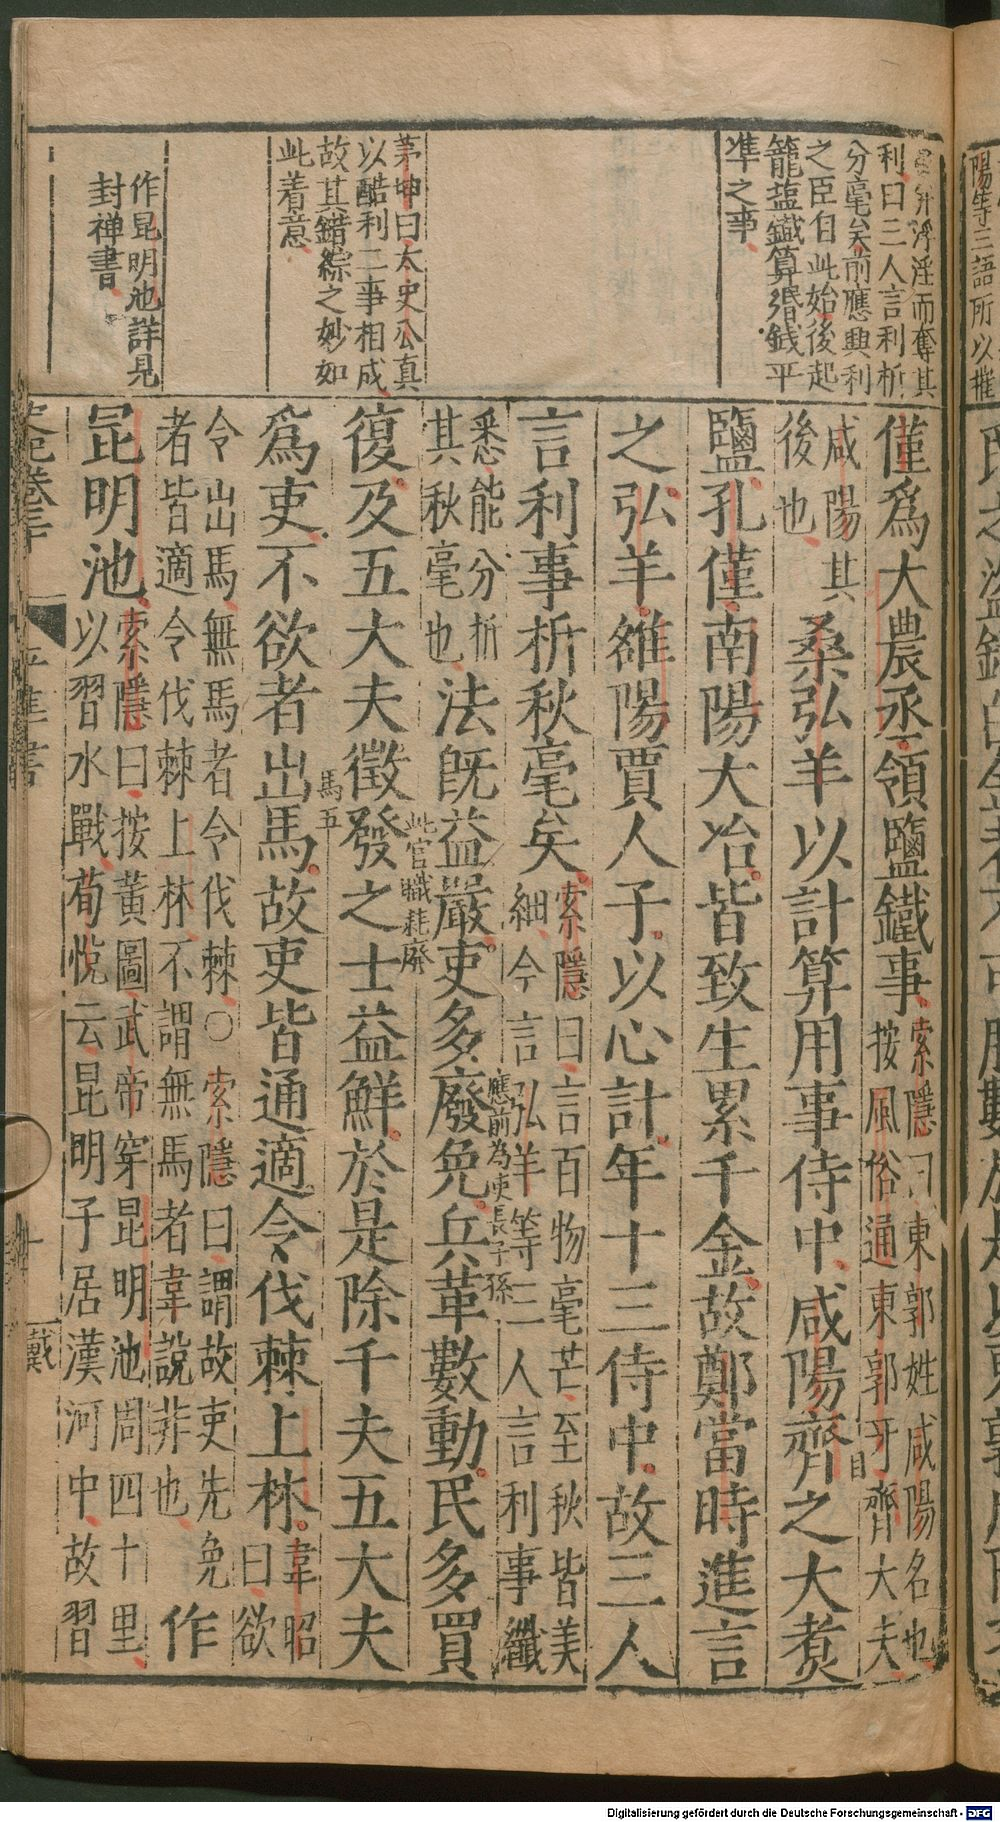 陽等三語所以摧
弁浮淫而奪其
利曰三人言利析
分毫矣前應興利
之臣自此始後起
籠盐鐵算緡錢平
凖之事
茅坤曰太史公真
以酷利二事相成
故其錯綜之妙如
此着意
作昆明池詳見
封禅書
僅爲大農丞領鹽鐵事索隱曰東郭姓咸陽名也
按風俗通東郭牙齊大夫
咸陽其
後也桑弘羊以計算用事侍中咸陽齊之大煮
鹽孔僅南陽大冶皆致生累千金故鄭當時進言
之弘羊雒陽賈人子以心計年十三侍中故三人
言利事析秋毫矣索隱曰言百物毫芒至秋皆美
細今言弘羊等三人言利事纖
悉能分析
其秋毫也法既益嚴吏多廢免兵革數動民多買
應前為吏長子孫
此官職耗廢
復及五大夫徵發之士益鮮於是除千夫五大夫
馬五
爲吏不欲者出馬故吏皆通適令伐棘上林韋昭
曰欲
令出馬無馬者令伐棘○索隱曰謂故吏先免
者皆適令伐棘上林不謂無馬者韋說非也作
昆明池索隱曰按黃圖武帝穿昆明池周四十里
以習水戰荀悅云昆明子居漢河中故習
史記卷三十
平準書
十
戴
Digitalisierung gefördert durch die Deutsche Forschungsgemeinschaft - DFG